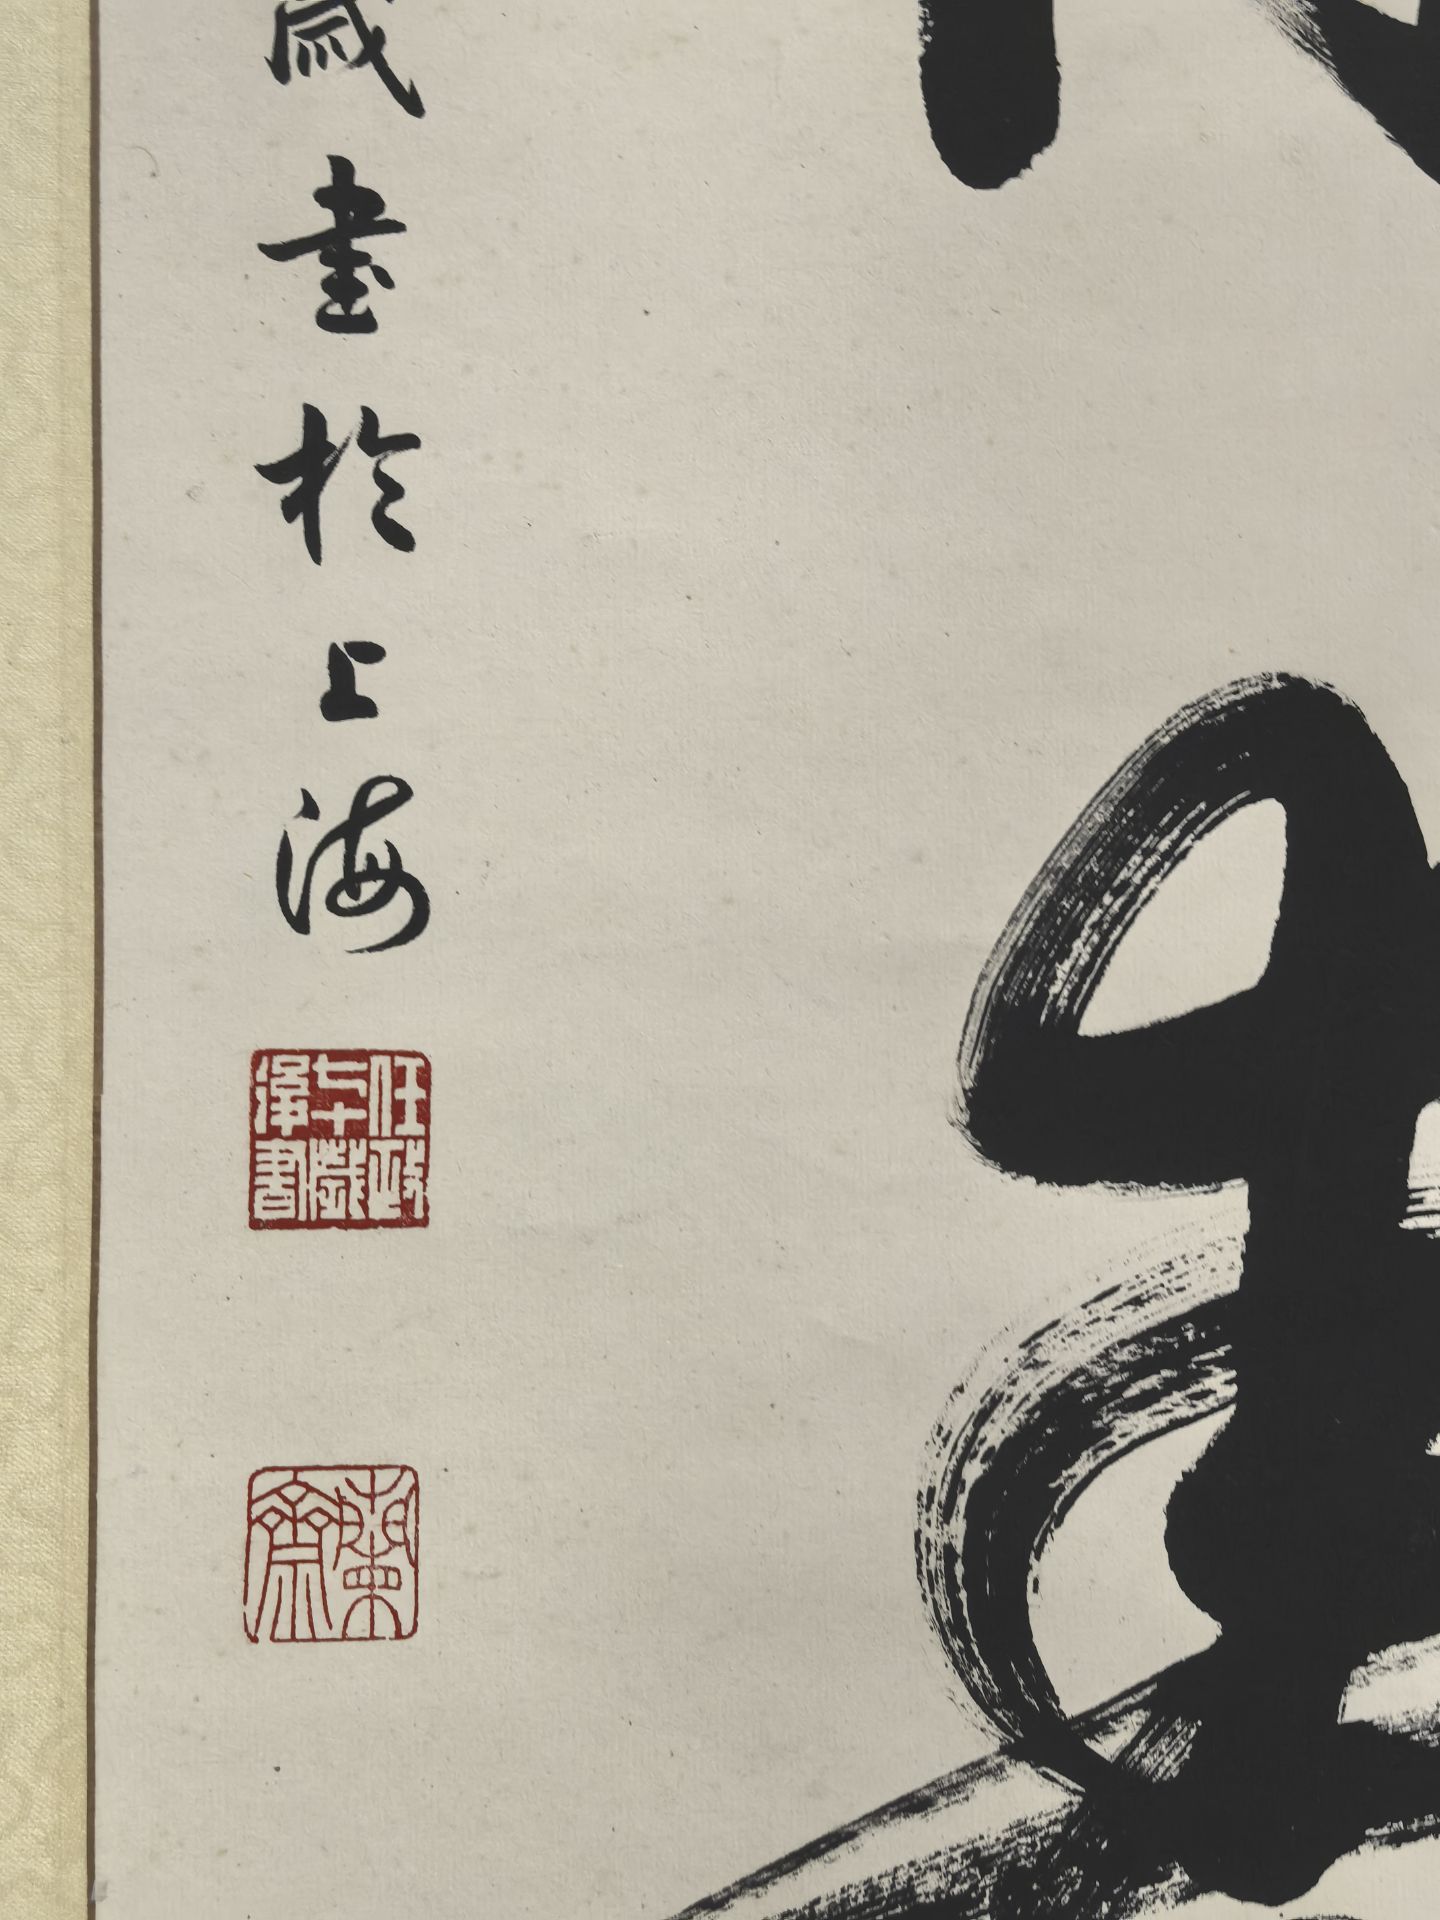 歲書於上海
任政
七十歲
後書
蘭齋